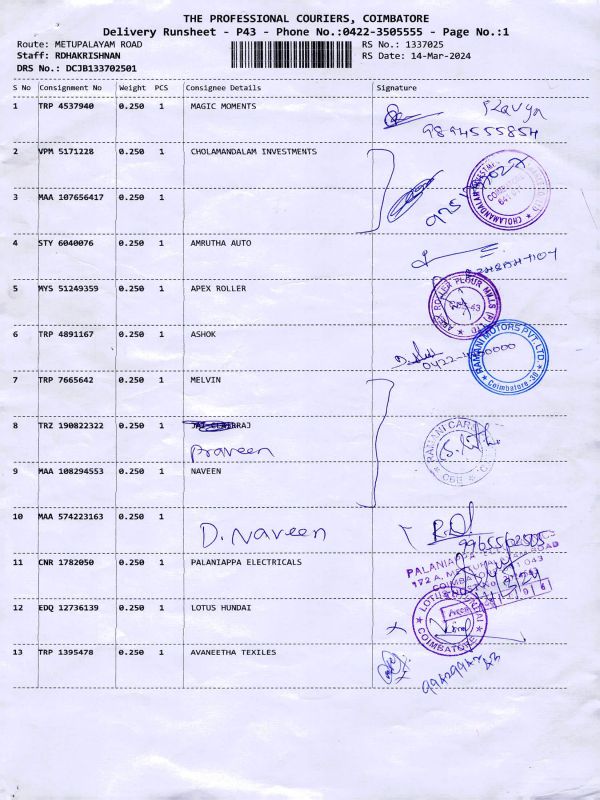 THE PROFESSIONAL COURIERS, COIMBATORE
Delivery Runsheet - P43 - Phone No.:0422-3505555 - Page No.:1
Route: METUPALAYAM ROAD RS No.: 1337025
Staff: RDHAKRISHNAN RS Date: 14-Mar-2024
DRS No.: DCJB133702501
S No Consignment No Weight PCS Consignee Details Signature
1 TRP 4537940 0.250 1 MAGIC MOMENTS
9894555854
2 VPM 5171228 0.250 1 CHOLAMANDALAM INVESTMENTS
3 MAA 107656417 0.250 1
4 STY 6040076 0.250 1 AMRUTHA AUTO
5 MYS 51249359 0.250 1 APEX ROLLER
APEX ROLLER FLOUR MILLS (P) LTD
6 TRP 4891167 0.250 1 ASHOK
RAMANI MOTORS PVT. LTD.
Coimbatore-30
7 TRP 7665642 0.250 1 MELVIN
8 TRZ 190822322 0.250 1
Praveen
RAMANI CAR
CBE
9 MAA 108294553 0.250 1 NAVEEN
10 MAA 574223163 0.250 1
D. Naveen
11 CNR 1782050 0.250 1 PALANIAPPA ELECTRICALS
12 EDQ 12736139 0.250 1 LOTUS HUNDAI
COIMBATORE
13 TRP 1395478 0.250 1 AVANEETHA TEXILES